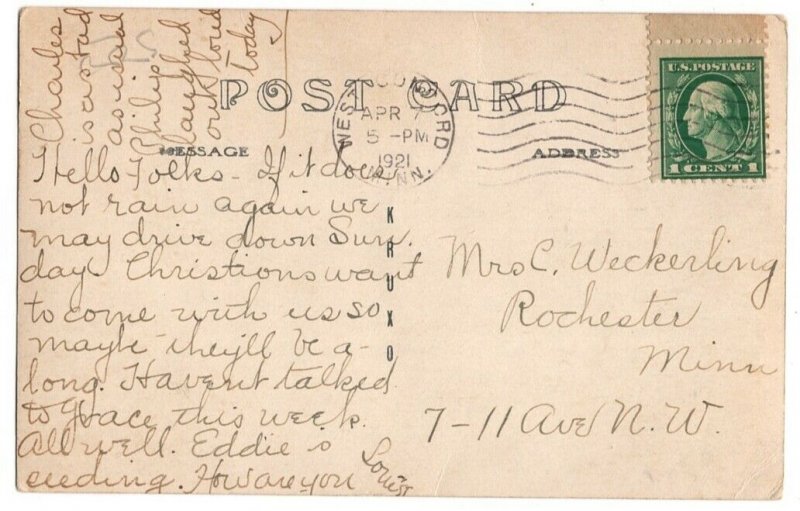 POST CARD
MESSAGE
ADDRESS
APR 7
5 -PM
1921
MINN.
U.S. POSTAGE
1 CENT 1
Hello Folks - If it does
not rain again we
may drive down Sun.
day. Christions want
to come with us so
maybe they'll be a-
long. Havent talked
to Grace this week.
All well. Eddie is
seeding. How are you
Louise
Charles
is as bad
as usual
Philip
laughed
out loud
today
KRUXO
Mrs C. Weckerling
Rochester
Minn
7-11 Ave N.W.